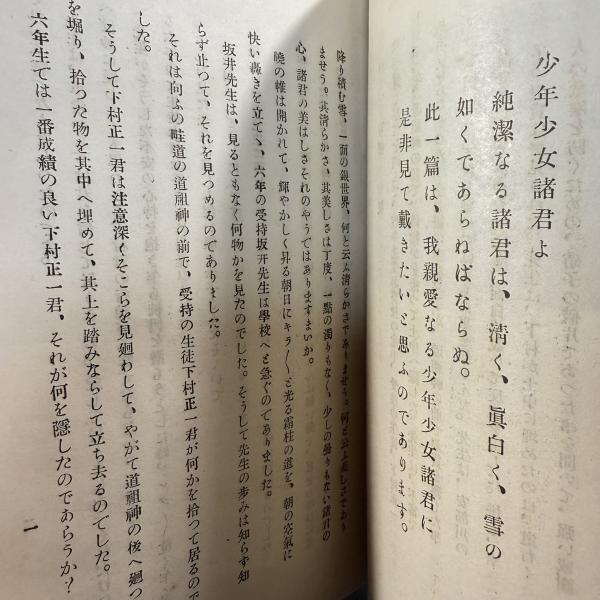 少年少女諸君よ
純潔なる諸君は、清く、眞白く、雪の
如くであらねばならぬ。
此一篇は、我親愛なる少年少女諸君に
是非見て戴きたいと思ふのであります。
降り積む雪、一面の銀世界、何と云ふ清らかさでありませう。何と云ふ美しさであり
ませう。其清らかさ、其美しさは丁度、一點の濁りもなく、少しの曇りもない諸君の
心、諸君の美はしさそれのやうではありますまいか。
曉の帷は開かれて、輝やかしく昇る朝日にキラ〱と光る霜柱の道を、朝の空氣に
快い轟きを立てゝ、六年の受持坂井先生は學校へと急ぐのでありました。
坂井先生は、見るともなく何物かを見たのでした。そうして先生の歩みは知らず知
らず止つて、それを見つめるのでありました。
それは向ふの畦道の道祖神の前で、受持の生徒下村正一君が何かを拾つて居るので
した。
そうして下村正一君は注意深くそこらを見廻わして、やがて道祖神の後へ廻つ
を堀り、拾つた物を其中へ埋めて、其土を踏みならして立ち去るのでした。
六年生では一番成績の良い下村正一君、それが何を隱したのであらうか?
一